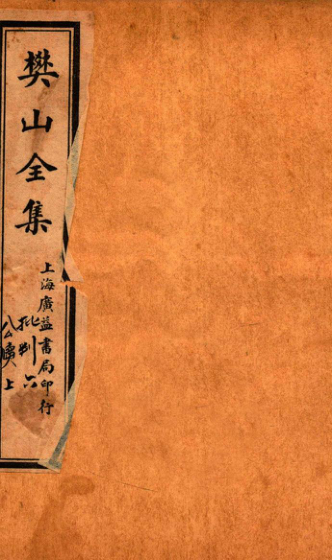 樊山全集
上海廣益書局印行
批判六
公牘上